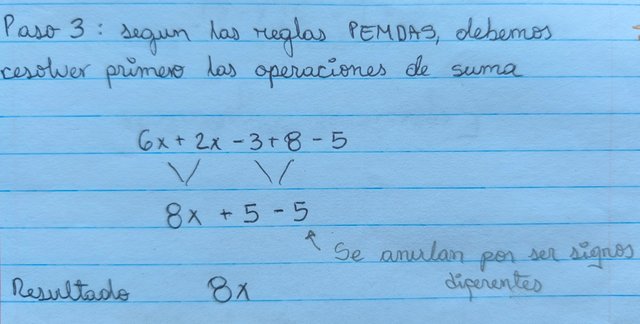 Paso 3: segun las reglas PEMDAS, debemos
resolver primero las operaciones de suma
6x + 2x - 3 + 8 - 5
8x + 5 - 5
Se anulan por ser signos
diferentes
Resultado 8x